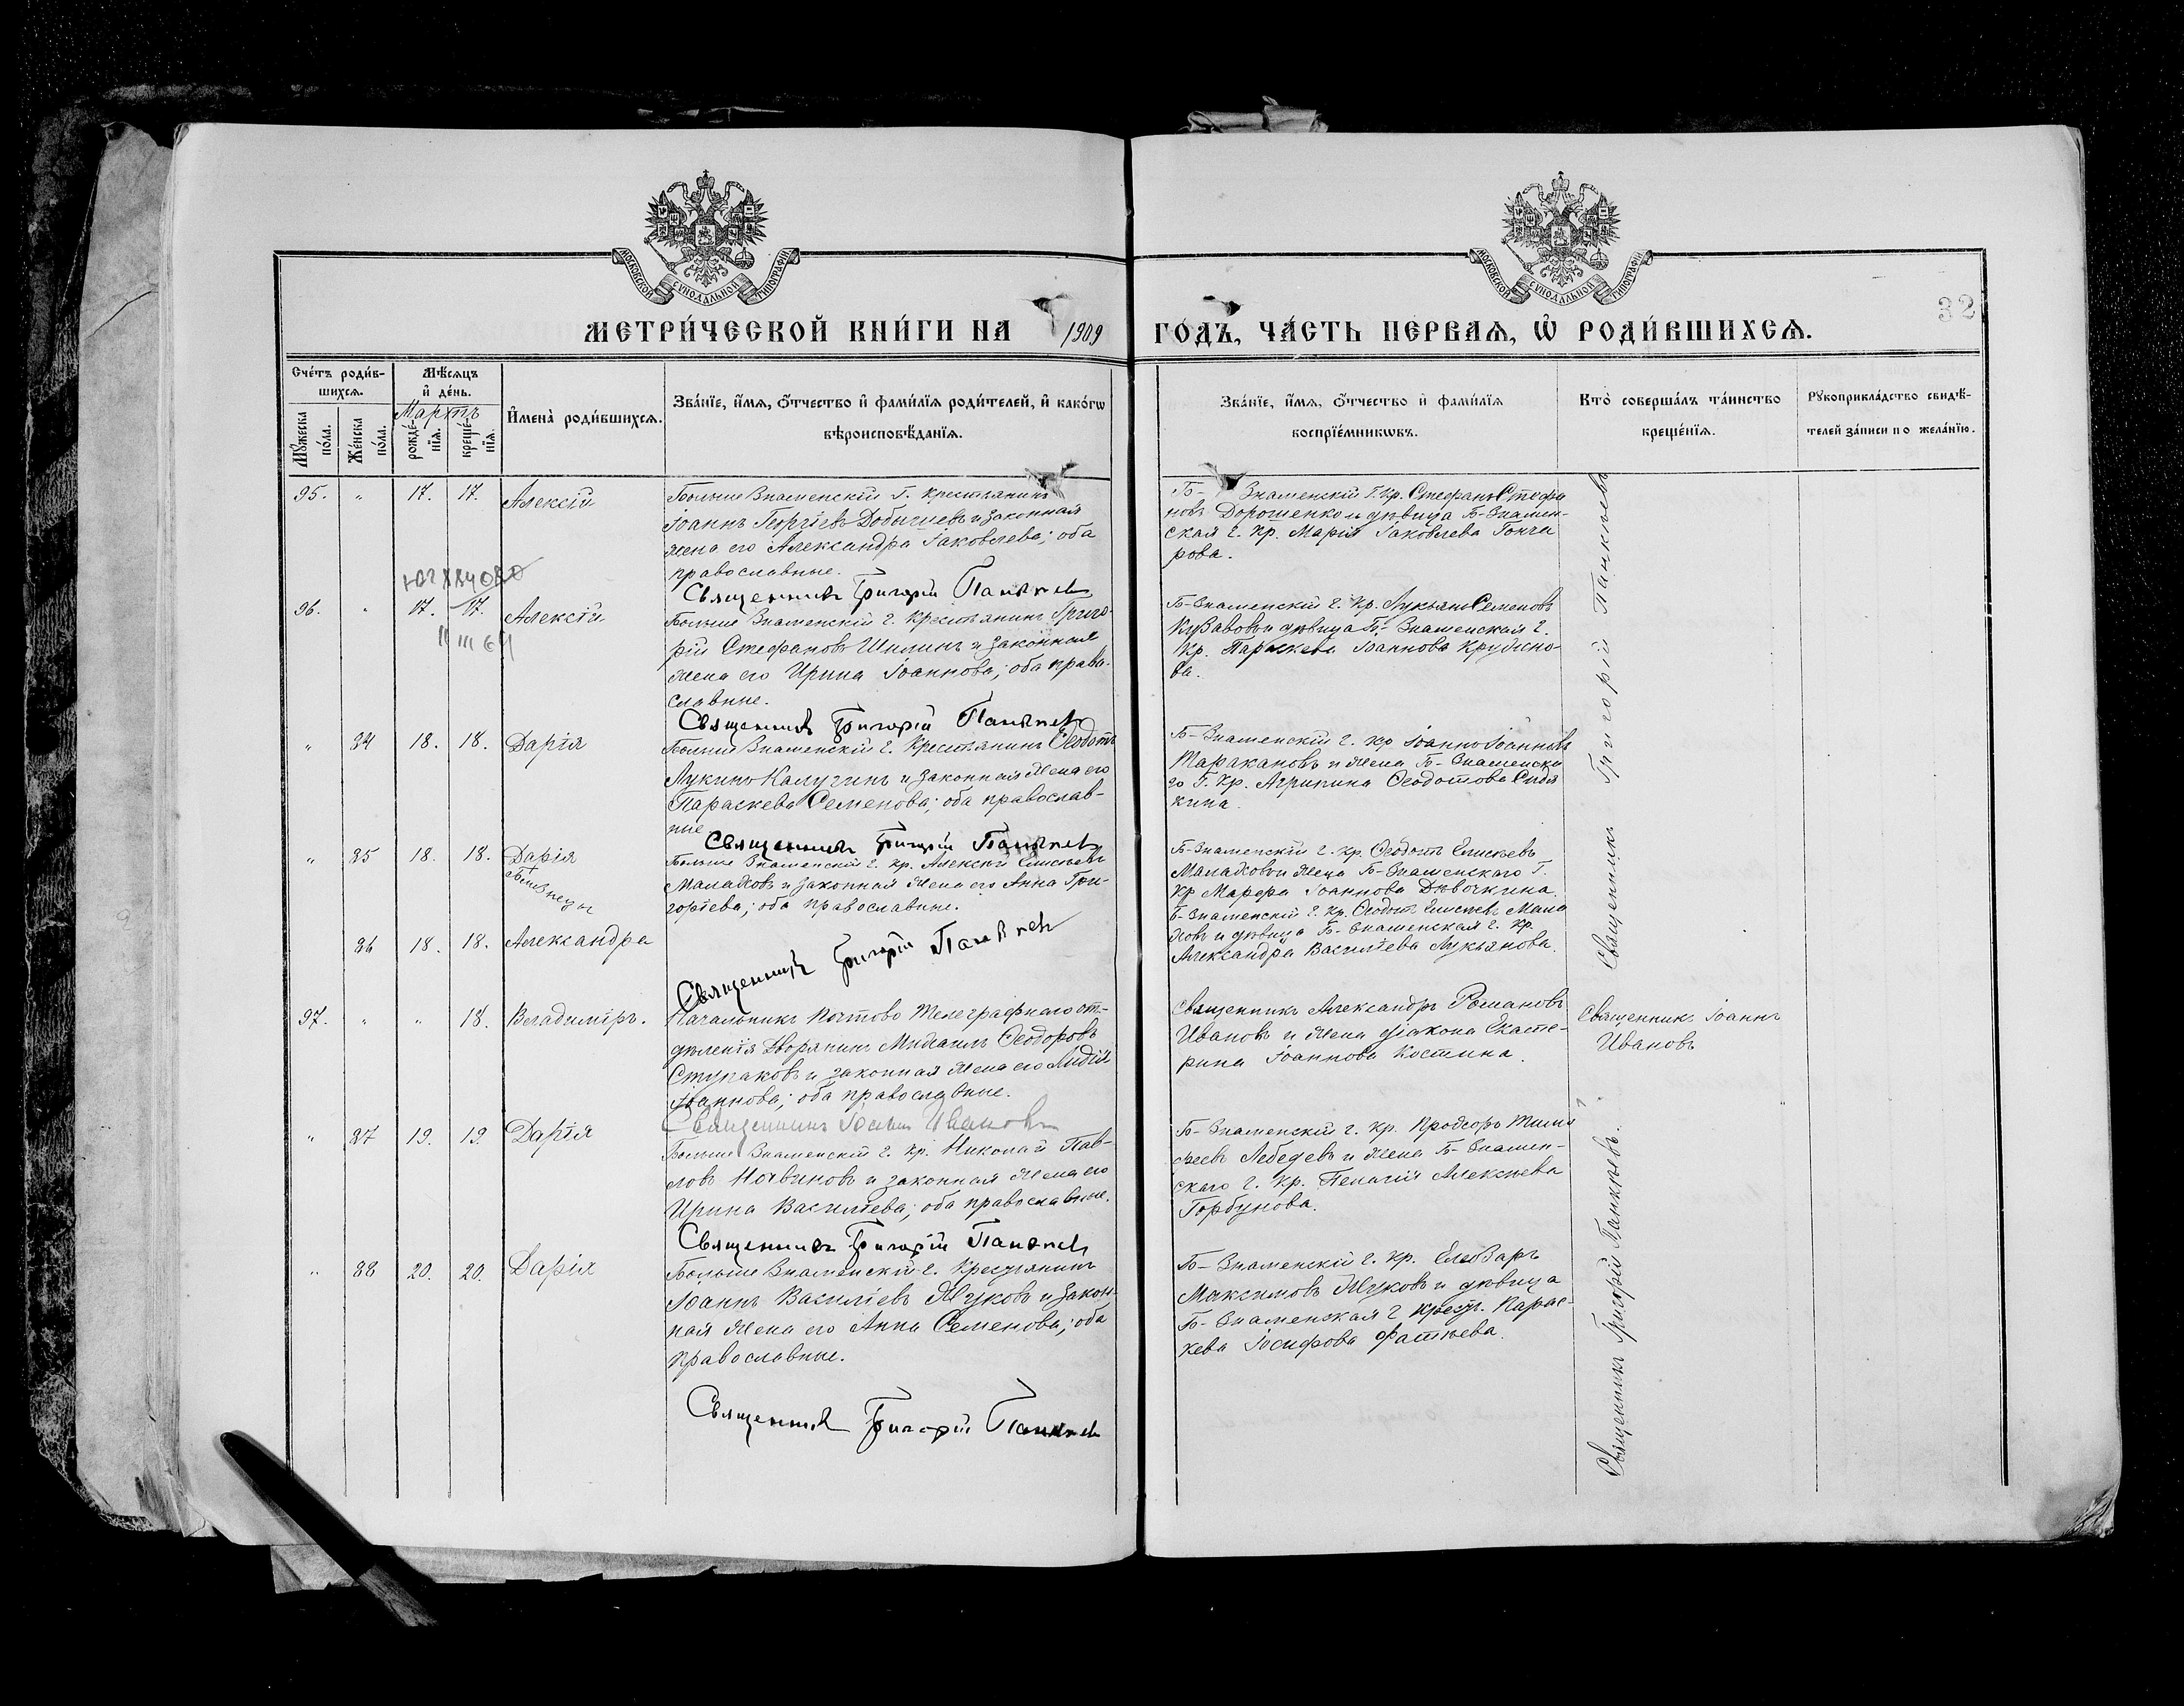 МОСКОВСКОЙ СѴНОДАЛЬНОЙ ТИПОГРАФІИ
МОСКОВСКОЙ СѴНОДАЛЬНОЙ ТИПОГРАФІИ
32
МЕТРИ́ЧЕСКОЙ КНИ́ГИ НА 1909 ГО́ДЪ, ЧА́СТЬ ПЕ́РВАѦ, Ѡ҆ РОДИ́ВШИХСѦ.
Сче́тъ роди́в-
шихсѧ.
Мꙋ́жеска по́ла.
Же́нска по́ла.
Мѣ́сѧцъ
и҆ де́нь.
Мартъ
рожде́-
нїѧ.
креще́-
нїѧ.
И҆мена̀ роди́вшихсѧ.
Зва́нїе, и҆́мѧ, ѻ҆́тчество и҆ фами́лїѧ роди́телей, и҆ како́гѡ
вѣроисповѣ́данїѧ.
Зва́нїе, и҆́мѧ, ѻ҆́тчество и҆ фами́лїѧ
воспрїе́мникѡвъ.
Кто̀ соверша́лъ та́инство
креще́нїѧ.
Рꙋкоприкла́дство свидѣ́-
телей за́писи по жела́нїю.
95. " 17. 17. Алексій
Больше Знаменскій г. крестьянинъ
Іоаннъ Георгіевъ и законная
жена его Александра Іаковлева; оба
православные.
Священникъ Григорій Панкѣев
Б- Знаменскій г. кр. Стефанъ Стефа
новъ Дорошенко и дѣвица Б-Знамен-
ская г. кр. Марія Іаковлева Гонча
рова.
96. " 17. 17. Алексій
11 III 64
Больше Знаменскій г. крестьянинъ Григо-
рій Стефановъ Шилинъ и законная
жена его Ирина Іоаннова; оба право-
славные.
Священникъ Григорій Панкѣев
Б-Знаменскій г. кр. Лукьянъ Семеновъ
и дѣвица Б- Знаменская г.
кр. Параскева Іоаннова
ва.
" 34 18. 18. Дарія
Больше Знаменскій г. крестьянинъ Ѳеодотъ
Лукинъ Калугинъ и законная жена его
Параскева Семенова; оба православ-
ные
Священникъ Григорій Панкѣев
Б- Знаменскій г. кр. Іоаннъ Іоанновъ
Таракановъ и жена Б- Знаменска
го г. кр. Агрипина Ѳеодотова Сидя
кина.
" 35 18. 18. Дарія
+
близнецы
Больше Знаменскій г. кр. Алексѣй Елисѣевъ
Малаховъ и законная жена его Анна Гри-
горіева; оба православные.
Б-Знаменскій г. кр. Ѳеодотъ Елисѣевъ
Малаховъ и жена Б-Знаменскаго г.
кр Марфа Іоаннова Дѣвочкина.
36 18. 18. Александра
Священникъ Григорій Панкѣев
Б-Знаменскій г. кр. Ѳеодотъ Елисѣевъ Мала
ховъ и дѣвица Б- Знаменская г. кр.
Александра Василіева Лукьянова.
97. " " 18. Владиміръ.
Начальникъ Почтово Телеграфнаго от-
дѣленія дворянинъ Михаилъ Ѳеодоровъ
Ступаковъ и законная жена его Лидія
Іоаннова; оба православные.
Священникъ Іоаннъ Ивановъ
Священникъ Александръ Романовъ
Ивановъ и жена діакона Екате-
рина Іоаннова Костина.
Священникъ Іоаннъ
Ивановъ
" 37 19. 19. Дарія
Больше Знаменскій г. кр. Николай Пав-
ловъ и законная жена его
Ирина Василіева; оба православные.
Священникъ Григорій Панкѣев
Б- Знаменскій г. кр. Тимо
феевъ Лебедевъ и жена Б- Знамен-
скаго г. кр. Пелагія Алексѣева
Горбунова.
" 38 20. 20. Дарія
Больше Знаменскій г. крестьянинъ
Іоаннъ Василіевъ Жуковъ и закон-
ная жена его Анна Семенова; оба
православные.
Священникъ Григорій Панкѣев
Б- Знаменскій г. кр. Елеазаръ
Максимовъ Жуковъ и дѣвица
Б- Знаменская г крест. Парас-
кева Іосифова Фатѣева.
Священникъ Григорій Панкѣевъ
Священникъ Григорій Панкѣевъ.